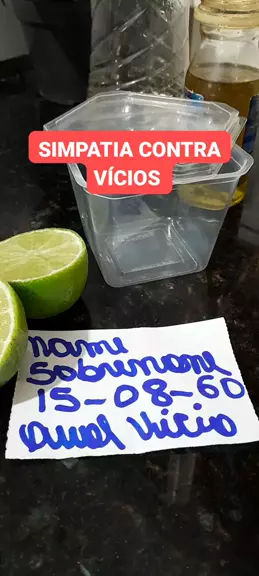 SIMPATIA CONTRA
VÍCIOS
name
Sobrenome
15-08-60
Qual Vício